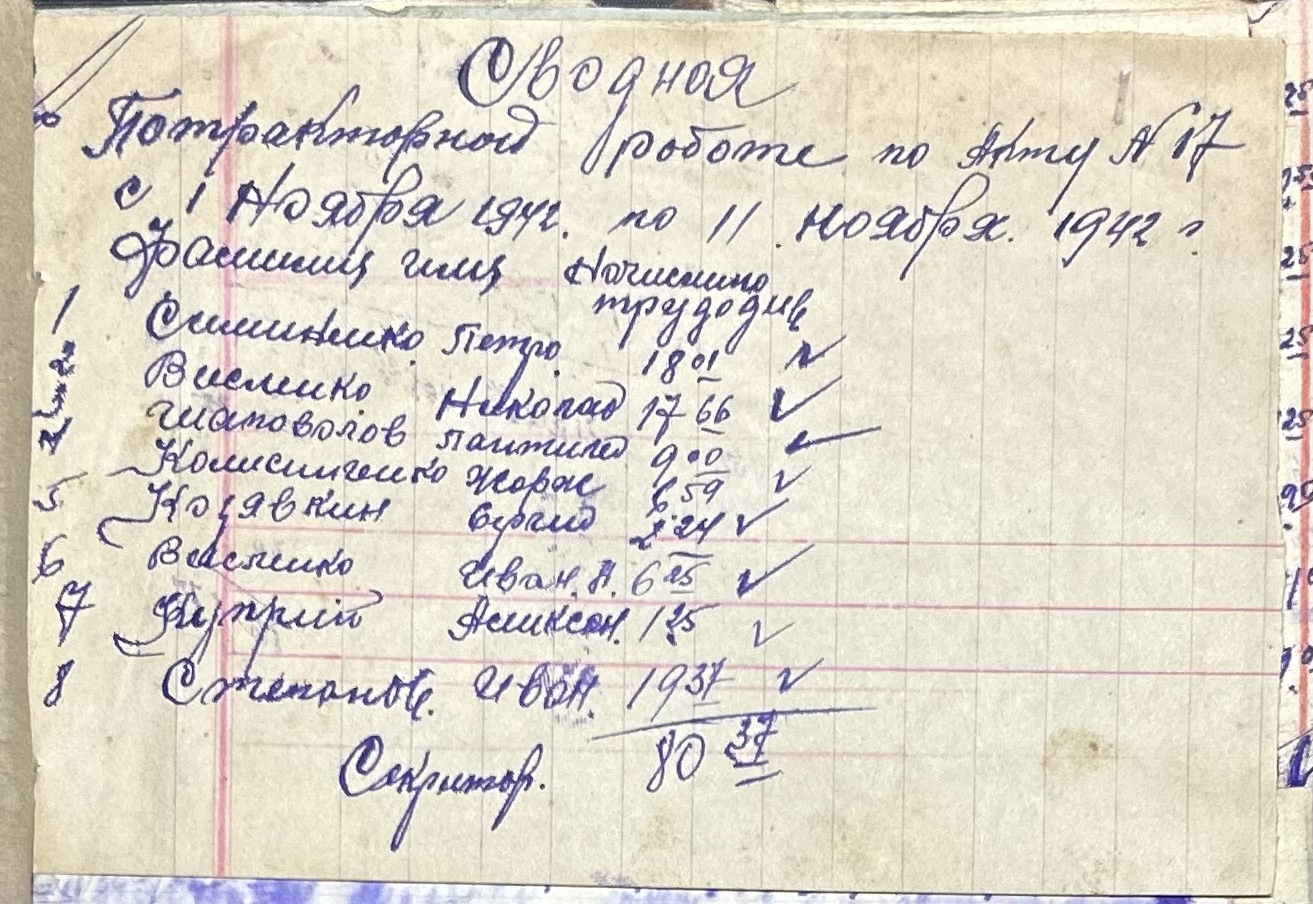 Сводная
Потракторной работе по Акту № 17
с 1 Ноября 1942. по 11. ноября. 1942 г.
Фамилиц имц Начислино
трудодне
1 Силиненко Петро. 18 01
2 Висленко Николай 17 66
Шаповолов Пантилей 9 00
Колисниченко Жорж 6 59
5 Козявкин Сергей 2 24
6 Висленко Иван. Н. 6 25
7 Куприй Аликсан. 1 25
8 Степанов. Иван. 19 37
80 37
Сокритор.